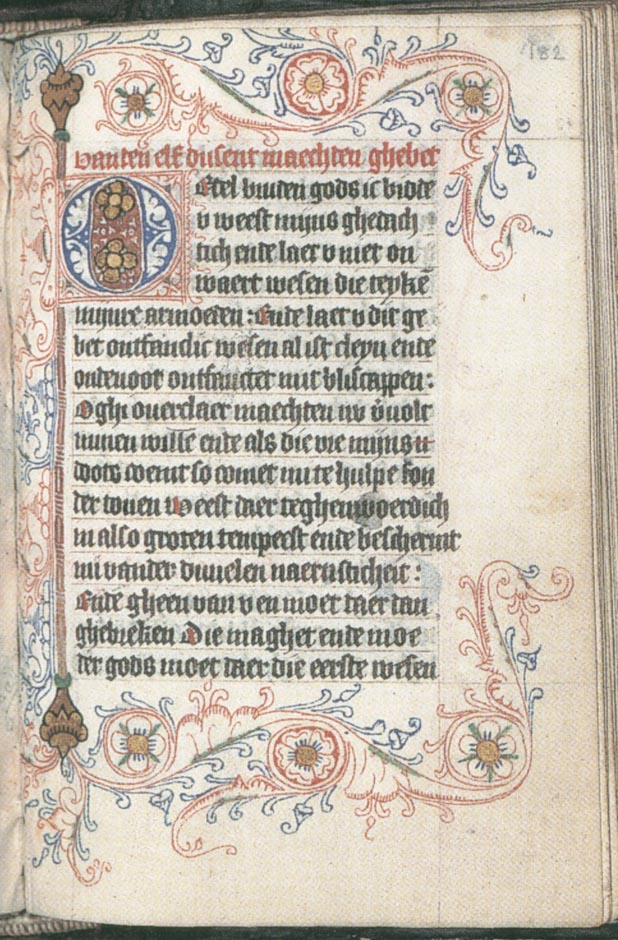 182
Vanden elf dusent maechten ghebet
Edel bruden gods ic bidde
v weest mijns ghedach
tich ende laet v niet on
waert wesen die teykē
mijnre armoeden : Ende laet v dit ge
bet ontfanclic wesen al ist cleyn ende
ontfanctet mit bliscappen :
O ghi ouerclaer maechten nv
minen wille ende als die vre mijns
doots coemt so comet mi te hulpe son
der toeuen Weest daer teghenwoerdich
in also groten tempeest ende beschermt
mi vander duuelen naernsticheit :
Ende gheen van v en moet daer dan
ghebreken Die maghet ende moe
der gods moet daer die eerste wesen